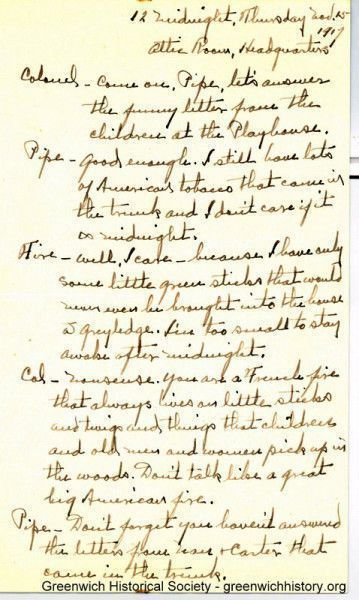 12 midnight, Thursday Nov. 15
1917
Attic Room, Headquarters
Colonel - Come on, Pipe, let's answer
the funny letter from the
children at the Playhouse.
Pipe - Good enough. I still have lots
of American tobacco that came in
the trunk and I don't care if it
is midnight.
Fire - Well, I care - because I have only
some little green sticks that would
never even be brought into the house
at Greyledge. I'm too small to stay
awake after midnight.
Col - Nonsense. You are a French fire
that always lives on little sticks
and twigs and things that children
and old men and women pick up in
the woods. Don't talk like a great
big American fire.
Pipe - Don't forget you haven't answered
the letters from & Carter that
came in the trunk.
Greenwich Historical Society - greenwichhistory.org